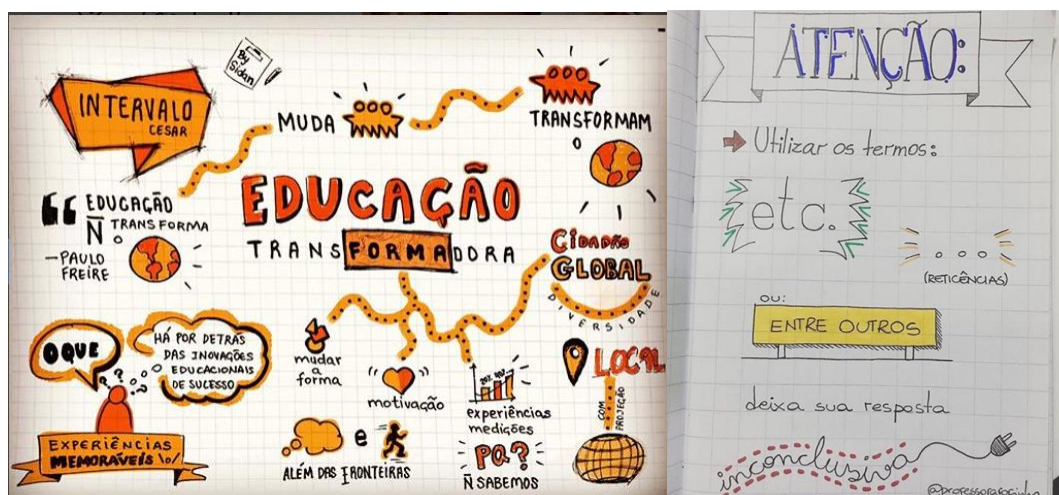 By
Sidan
INTERVALO
CESAR
MUDA
TRANSFORMAM
O
"EDUCAÇÃO
Ñ TRANSFORMA
O
— PAULO
FREIRE
EDUCAÇÃO
TRANSFORMADORA
CIDADÃO
GLOBAL
DIVERSIDADE
O QUE
HÁ POR DETRÁS
DAS INOVAÇÕES
EDUCACIONAIS
DE SUCESSO
EXPERIÊNCIAS
MEMORÁVEIS \o/
mudar
a
forma
motivação
experiências
medições
LOCAL
COM
PROJEÇÃO
e
ALÉM DAS FRONTEIRAS
PQ?
Ñ SABEMOS
ATENÇÃO:
Utilizar os termos:
etc.
...
(RETICÊNCIAS)
OU:
ENTRE OUTROS
deixa sua resposta
inconclusiva